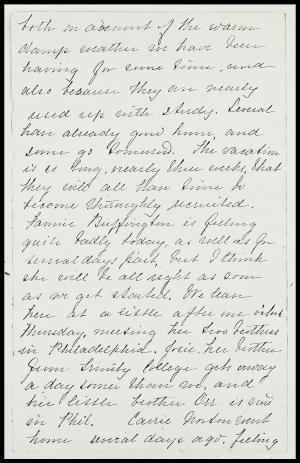 both on account of the warm
damp weather we have been
having for some time, and
also because they are nearly
used up with study. Several
have already gone home, and
some go tomorrow. The vacation
is so long, nearly three weeks, that
they will all have time to
become thoroughly recruited.
Fannie Buffington is feeling
quite badly today, as well as for
several days past, but I think
she will be all right as soon
as we get started. We leave
here at a little after one
Thursday, meeting her two brothers
in Philadelphia. Josie, her brother
from Trinity College gets away
a day sooner than we, and
her little brother Orr is now
in Phil. Carrie Norton went
home several days ago, feeling